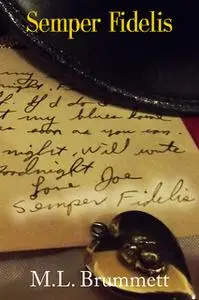 Semper Fidelis
my
night,
If I'd do
my blues home
as soon as you can.
night, Will write
goodnight
Love Joe
Semper Fidelis
M.L. Brummett